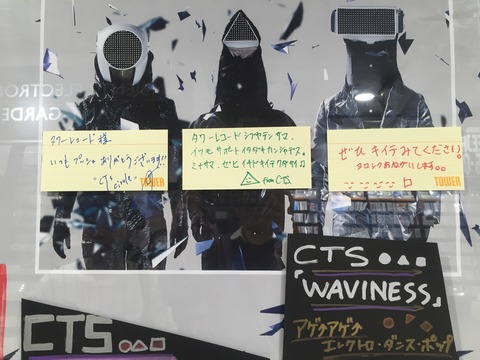 LECTRO
GARDE
タワーレコード様
いつもプッシュありがとうございます!!
"Circle"
TOWER
タワーレコードシブヤテンサマ.
イツモサポートイタダキカンシャデス。
ミナサマ.ゼヒイチドキイテクダサイ♪
△ from CTS.
ぜひキイテみてください。
タロンクおねガイします。
TOWER
CTS ●▲■
「WAVINESS」
アゲ↗アゲ↗
エレクトロ・ダンス・ポップ
CTS... ■▲●